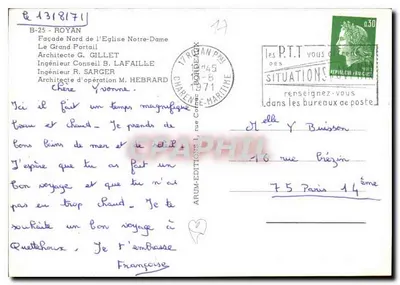 Le 13/8/71
17
B-25 - ROYAN
Façade Nord de l'Eglise Notre-Dame
Le Grand Portail
Architecte G. GILLET
Ingénieur Conseil B. LAFAILLE
Ingénieur R. SARGER
Architecte d'opération M. HEBRARD
Chère Yvonne.
Ici il fait un temps magnifique
beau et chaud. Je prends de
bons bains de mer et
J'espère que tu as fait un
bon voyage et que tu n'ai
pas eu trop chaud. Je te
souhaite un bon voyage à
Quettehou. Je t'embrasse
Françoise
17 ROYAN PPAL
1971
CHARENTE-MARITIME
0,30
les P.T.T vous
DES
SITUATIONS
renseignez-vous
dans les bureaux de poste
Melle Y Buisson
16 rue Crézin
75 Paris 14ème